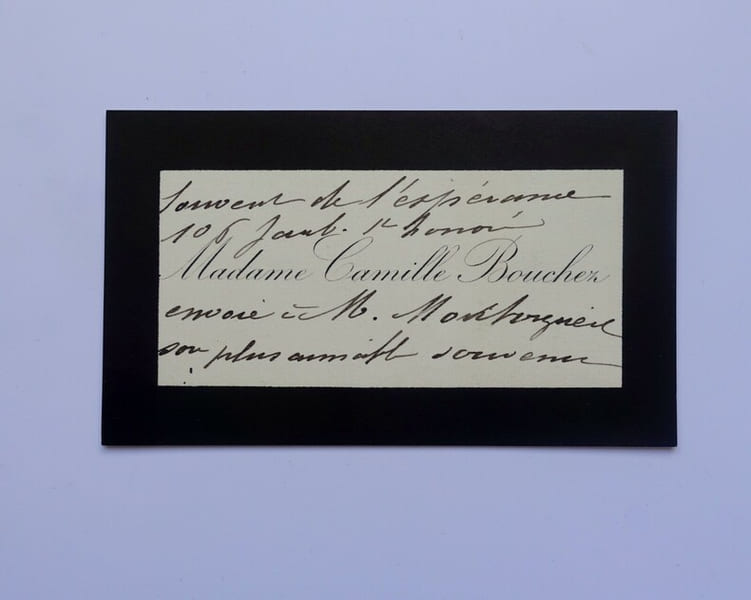 Couvent de l'espérance
106 faub. St honoré
Madame Camille Bouchez
envoie à M. Montorgueil
son plus aimable souvenir